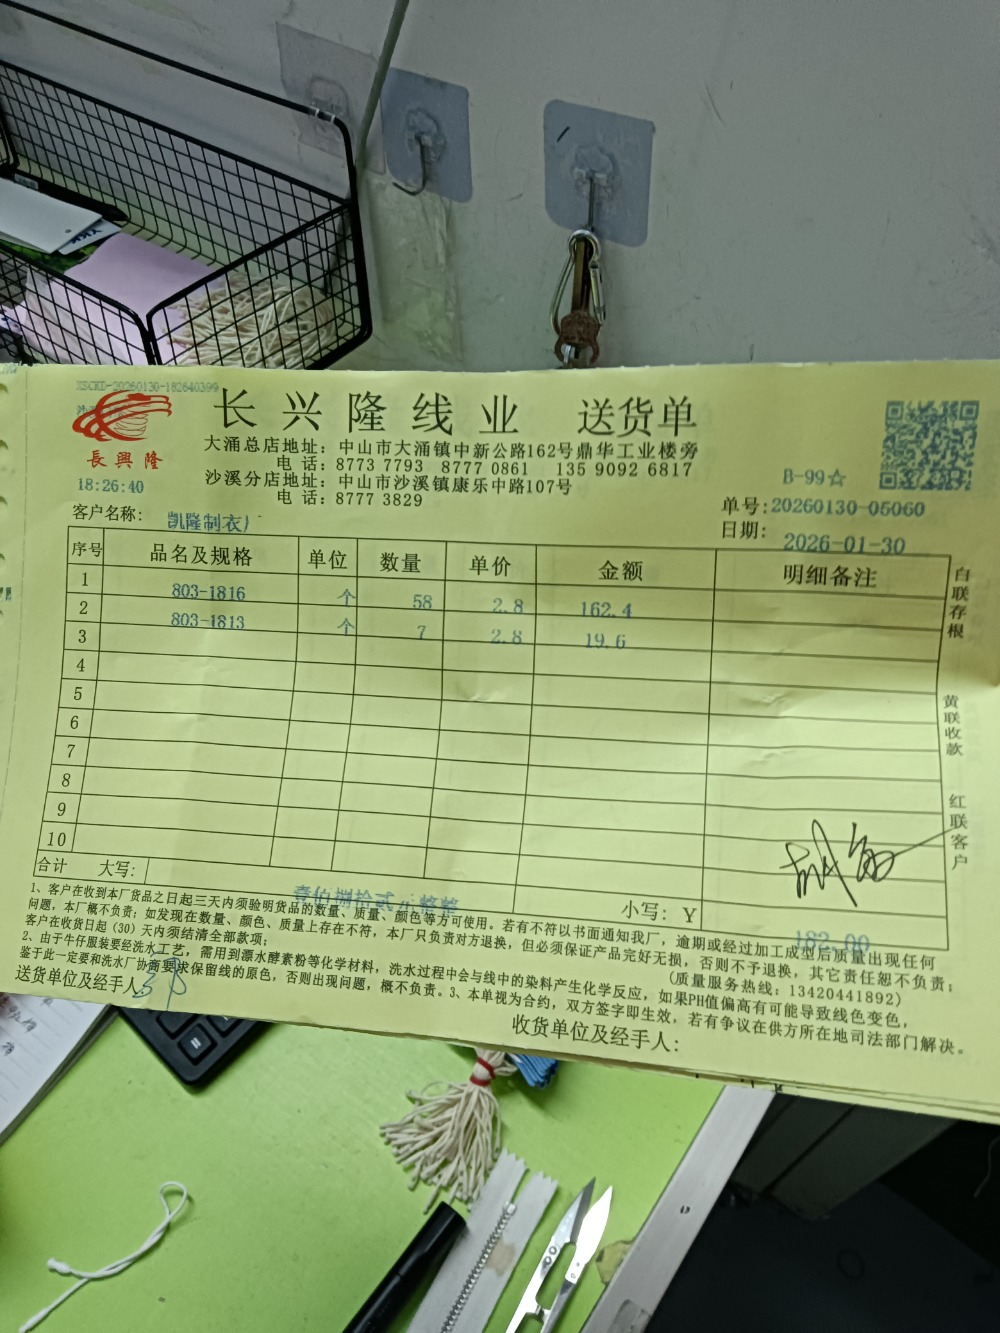 XSCKD-20260130-182640399
长兴隆线业 送货单
長興隆
大涌总店地址：中山市大涌镇中新公路162号鼎华工业楼旁
电 话：8773 7793 8777 0861 135 9092 6817
沙溪分店地址：中山市沙溪镇康乐中路107号
电 话：8777 3829
18:26:40
B-99☆
单号：20260130-05060
客户名称：凯隆制衣厂
日期：2026-01-30
序号 品名及规格 单位 数量 单价 金额 明细备注
1 803-1816 个 58 2.8 162.4
2 803-1813 个 7 2.8 19.6
3
4
5
6
7
8
9
10
合计 大写： 壹佰捌拾贰元整 小写：￥ 182.00
白联存根
黄联收款
红联客户
1、客户在收到本厂货品之日起三天内须验明货品的数量、质量、颜色等方可使用。若有不符以书面通知我厂，逾期或经过加工成型后质量出现任何
问题，本厂概不负责；如发现在数量、颜色、质量上存在不符，本厂只负责对方退换，但必须保证产品完好无损，否则不予退换，其它责任恕不负责；
客户在收货日起（30）天内须结清全部款项； （质量服务热线：13420441892）
2、由于牛仔服装要经洗水工艺，需用到漂水酵素粉等化学材料，洗水过程中会与线中的染料产生化学反应，如果PH值偏高有可能导致线色变色，
鉴于此一定要和洗水厂协商要求保留线的原色，否则出现问题，概不负责。3、本单视为合约，双方签字即生效，若有争议在供方所在地司法部门解决。
送货单位及经手人：
收货单位及经手人：